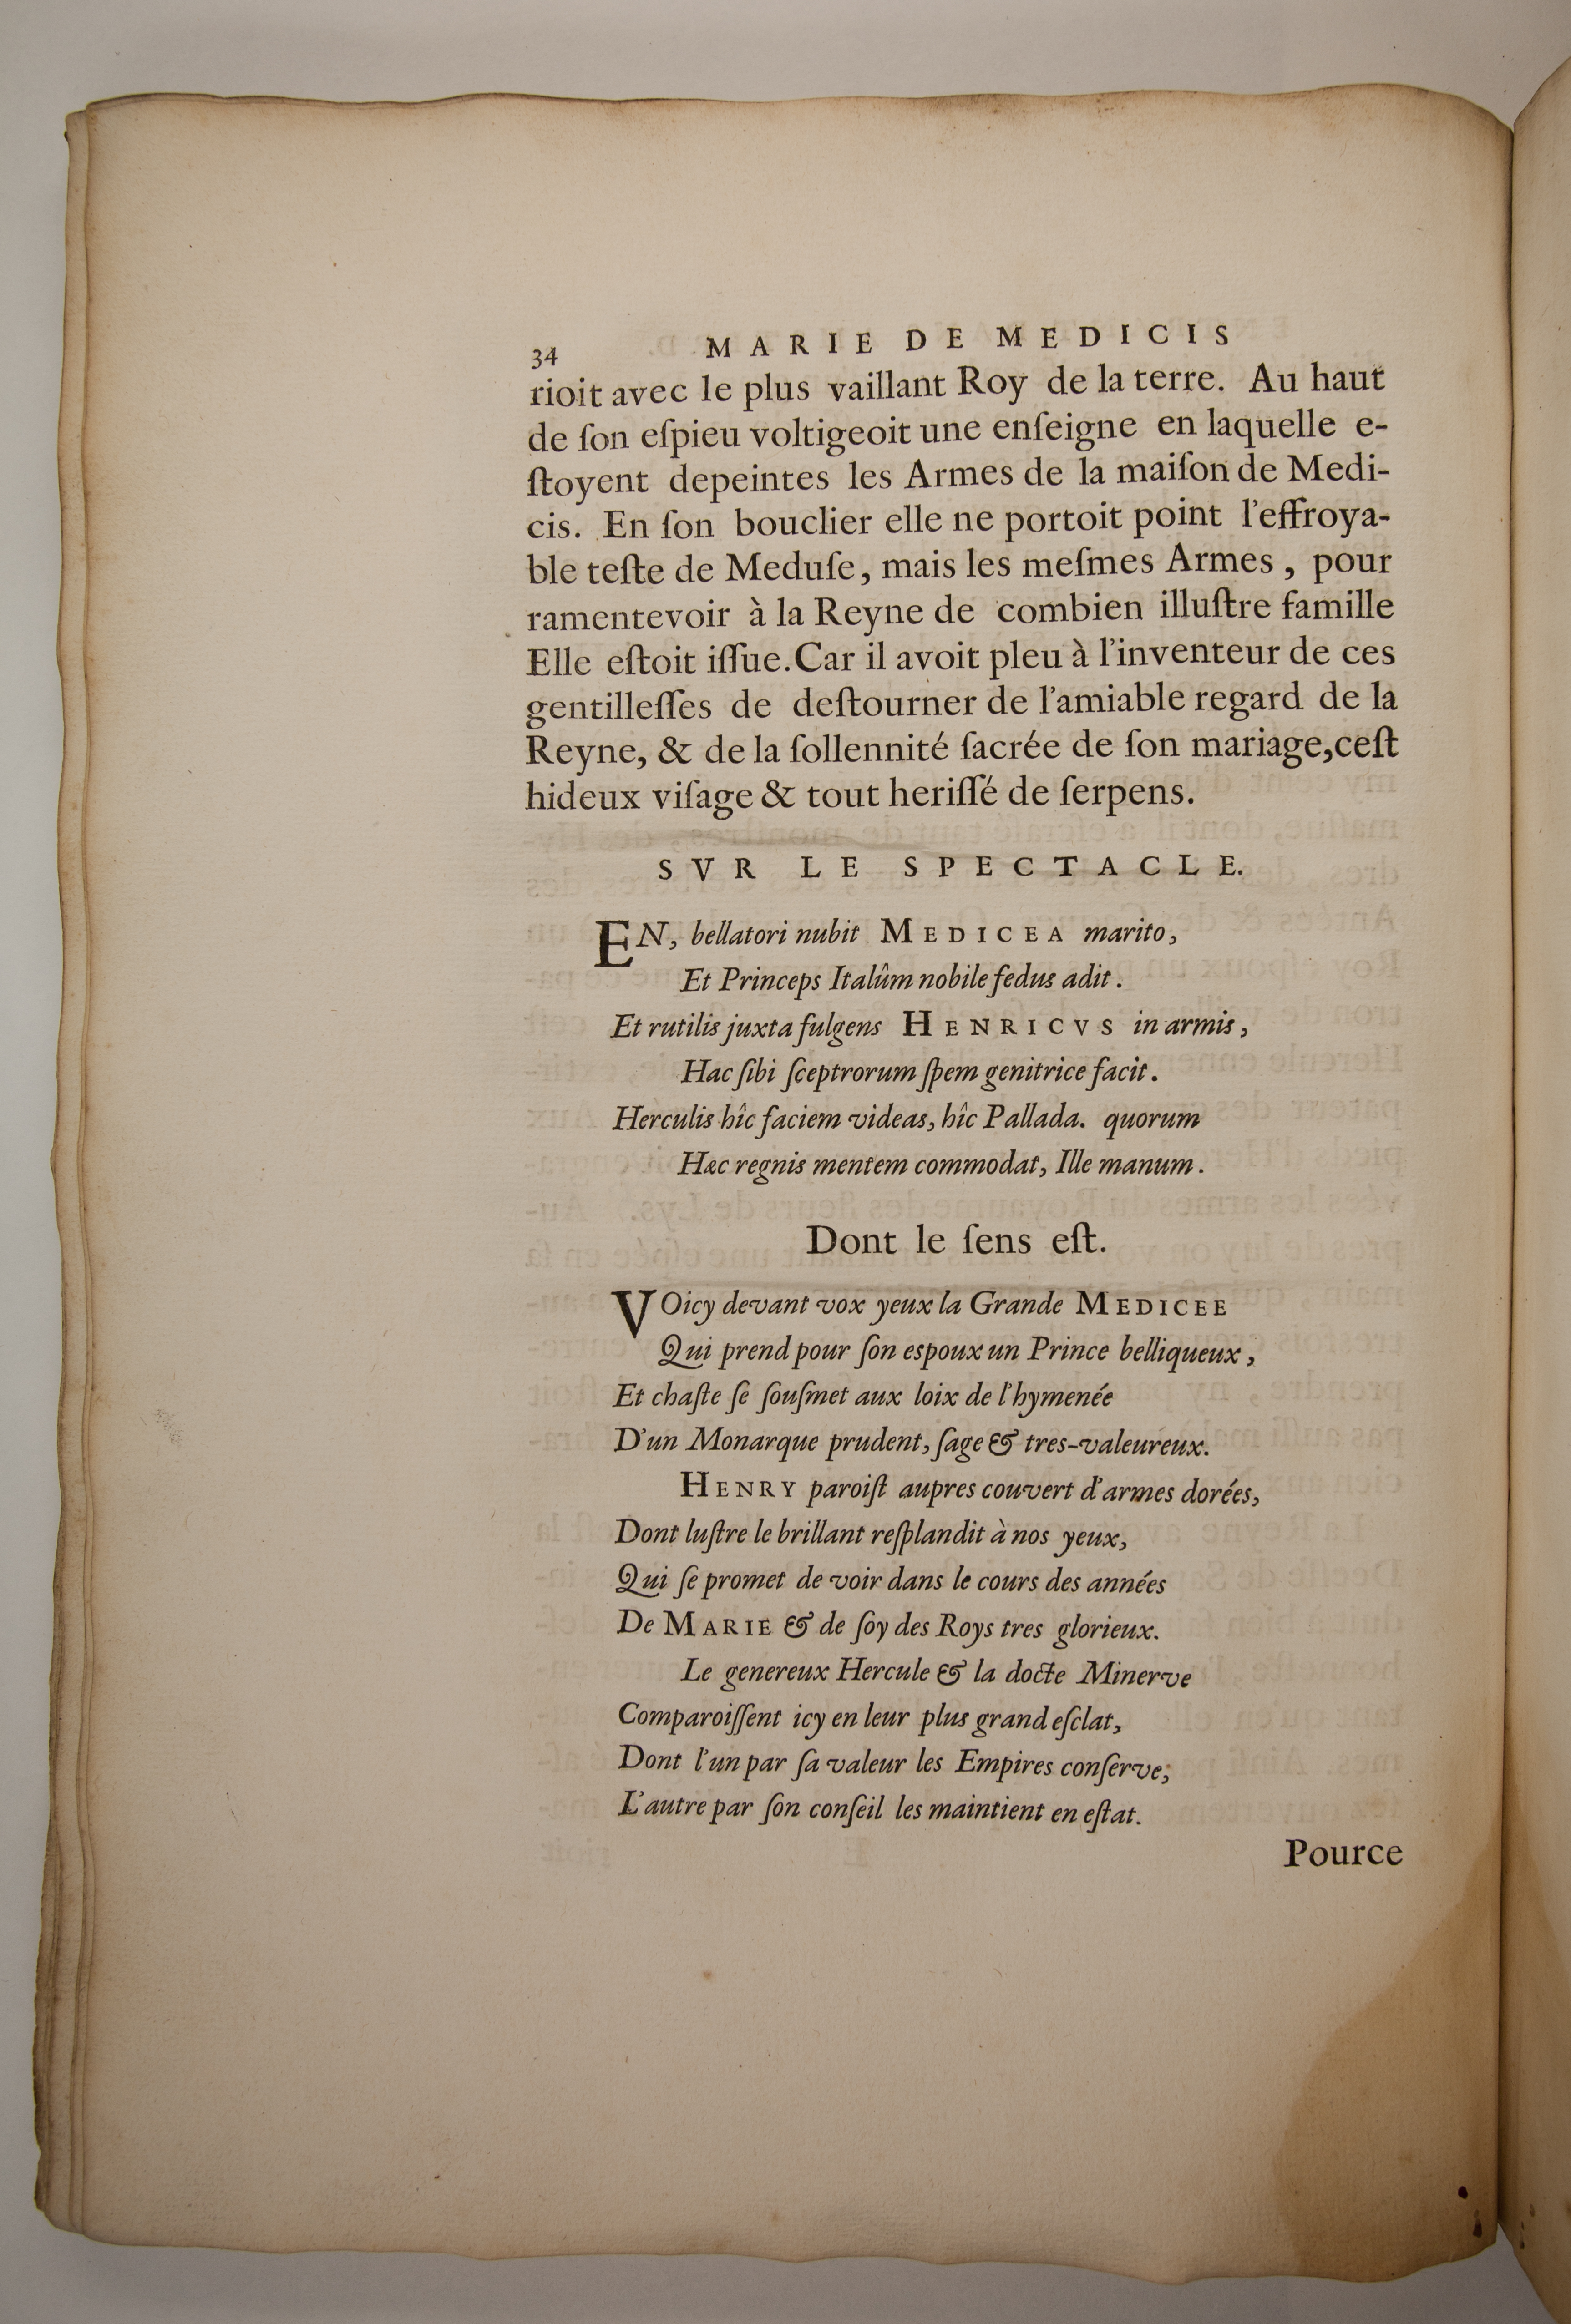 34 MARIE DE MEDICIS
rioit avec le plus vaillant Roy de la terre. Au haut
de ſon eſpieu voltigeoit une enſeigne en laquelle e-
ſtoyent depeintes les Armes de la maiſon de Medi-
cis. En ſon bouclier elle ne portoit point l'effroya-
ble teſte de Meduſe, mais les meſmes Armes, pour
ramentevoir à la Reyne de combien illuſtre famille
Elle eſtoit iſſue. Car il avoit pleu à l'inventeur de ces
gentilleſſes de deſtourner de l'amiable regard de la
Reyne, & de la ſollennité ſacrée de ſon mariage, ceſt
hideux viſage & tout heriſſé de ſerpens.
SVR LE SPECTACLE.
EN, bellatori nubit MEDICEA marito,
Et Princeps Italûm nobile fedus adit.
Et rutilis juxta fulgens HENRICVS in armis,
Hac ſibi ſceptrorum ſpem genitrice facit.
Herculis hîc faciem videas, hîc Pallada. quorum
Hæc regnis mentem commodat, Ille manum.
Dont le ſens eſt.
VOicy devant vox yeux la Grande MEDICEE
Qui prend pour ſon espoux un Prince belliqueux,
Et chaſte ſe ſouſmet aux loix de l'hymenée
D'un Monarque prudent, ſage & tres-valeureux.
HENRY paroiſt aupres couvert d'armes dorées,
Dont luſtre le brillant reſplandit à nos yeux,
Qui ſe promet de voir dans le cours des années
De MARIE & de ſoy des Roys tres glorieux.
Le genereux Hercule & la docte Minerve
Comparoiſſent icy en leur plus grand eſclat,
Dont l'un par ſa valeur les Empires conſerve,
L'autre par ſon conſeil les maintient en eſtat.
Pource